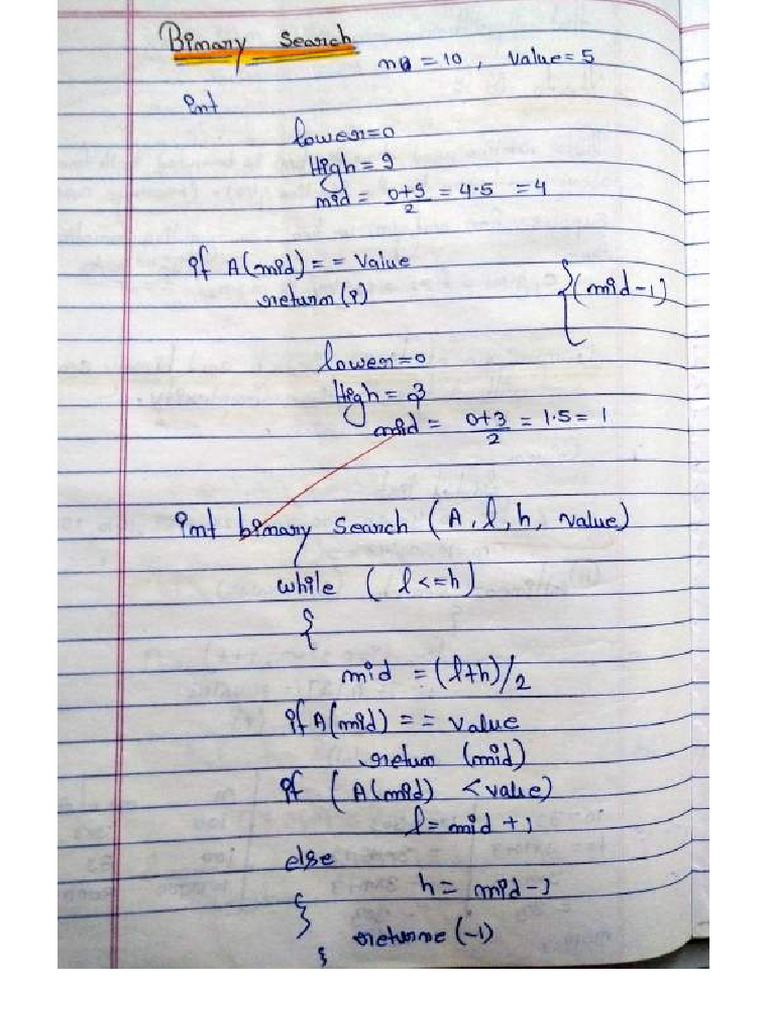 Binary Search
n = 10, Value = 5
int
lower=0
High = 9
mid = 0+9/2 = 4.5 = 4
if A(mid) == value
return (i)
} (mid-1)
{
lower=0
High = 3
mid = 0+3/2 = 1.5 = 1
int binary Search (A, l, h, value)
while (l<=h)
{
mid = (l+h)/2
if A(mid) == value
return (mid)
if (A(mid) < value)
l = mid + 1
else
h = mid-1
}
returne (-1)
}